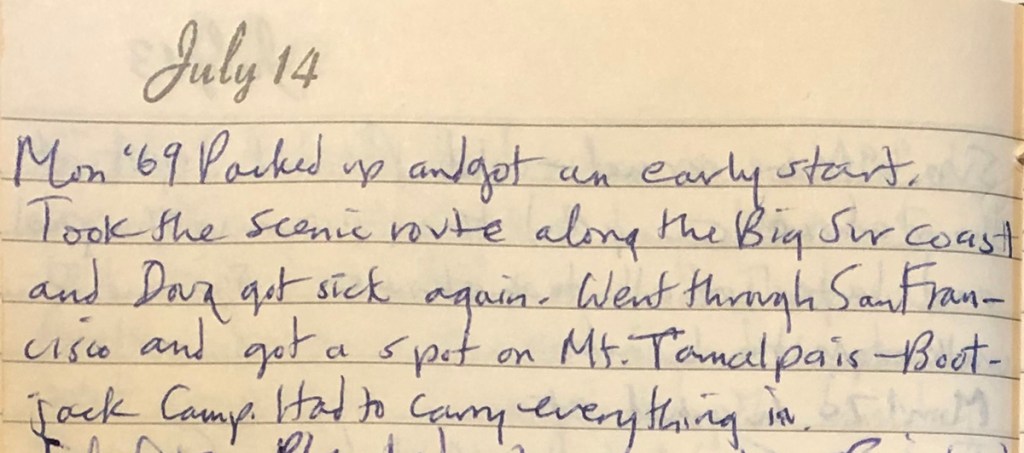 July 14
Mon '69 Packed up and got an early start.
Took the scenic route along the Big Sur coast
and Doug got sick again. Went through San Fran-
cisco and got a spot on Mt. Tamalpais - Boot-
jack Camp. Had to carry everything in.